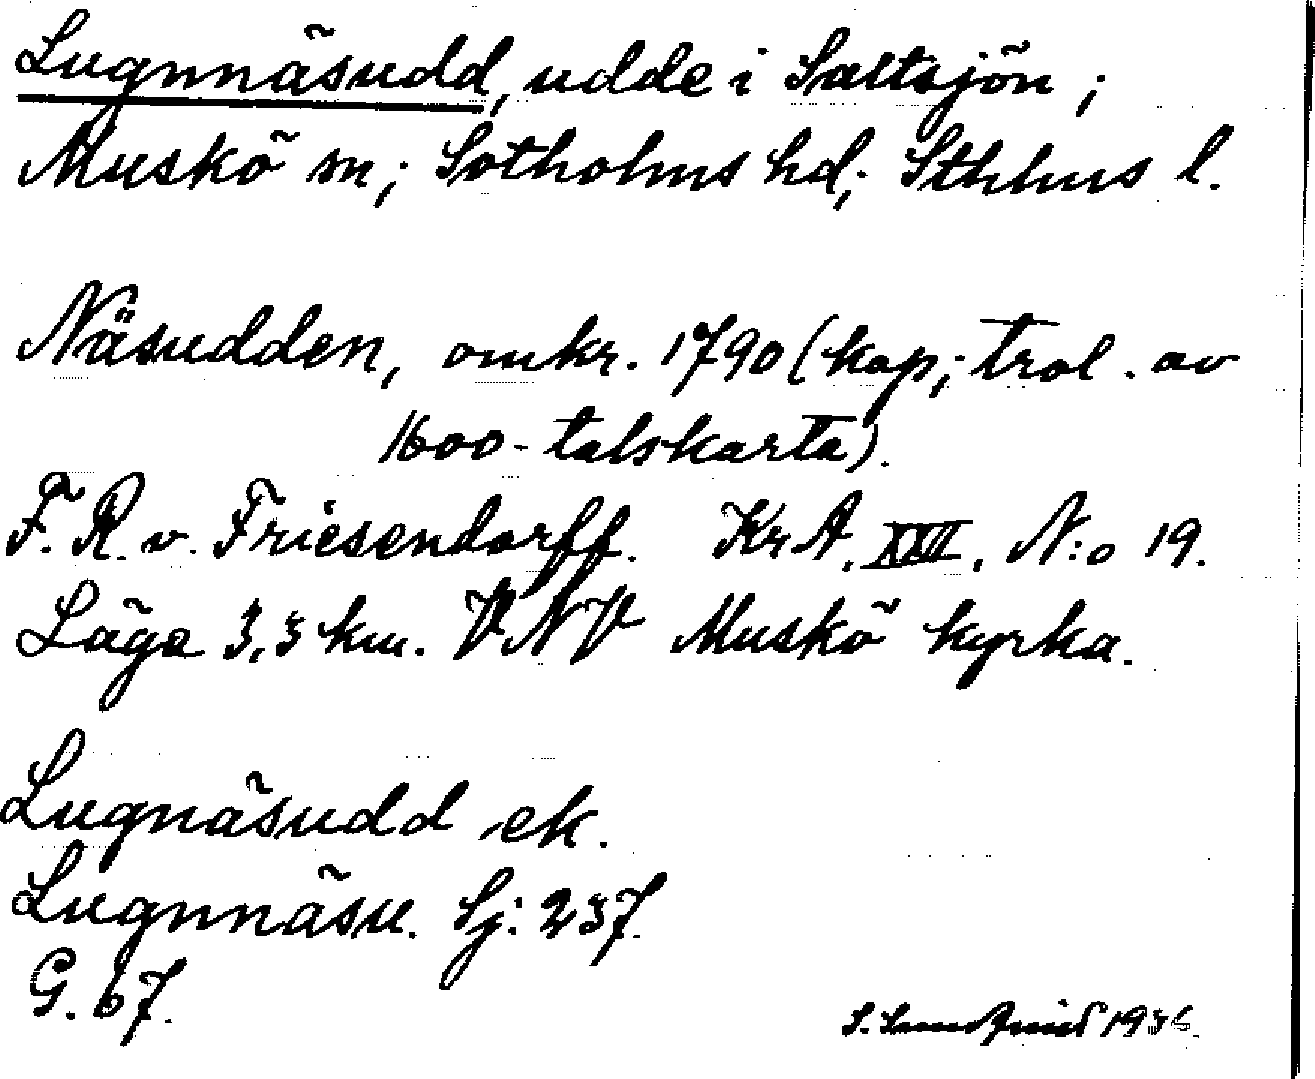 Lugnnäsudd, udde i Saltsjön;
Muskö sn; Sotholms hd; Sthlms l.
Näsudden, omkr. 1790 (kop; trol. av
1600-talskarta).
F. R. v. Friesendorff. Kr A. XXII. N:o 19.
Läge 3,3 km. VNV Muskö kyrka.
Lugnäsudd ek.
Lugnnäsu. Sj: 237.
G. 67.
S. 1936.